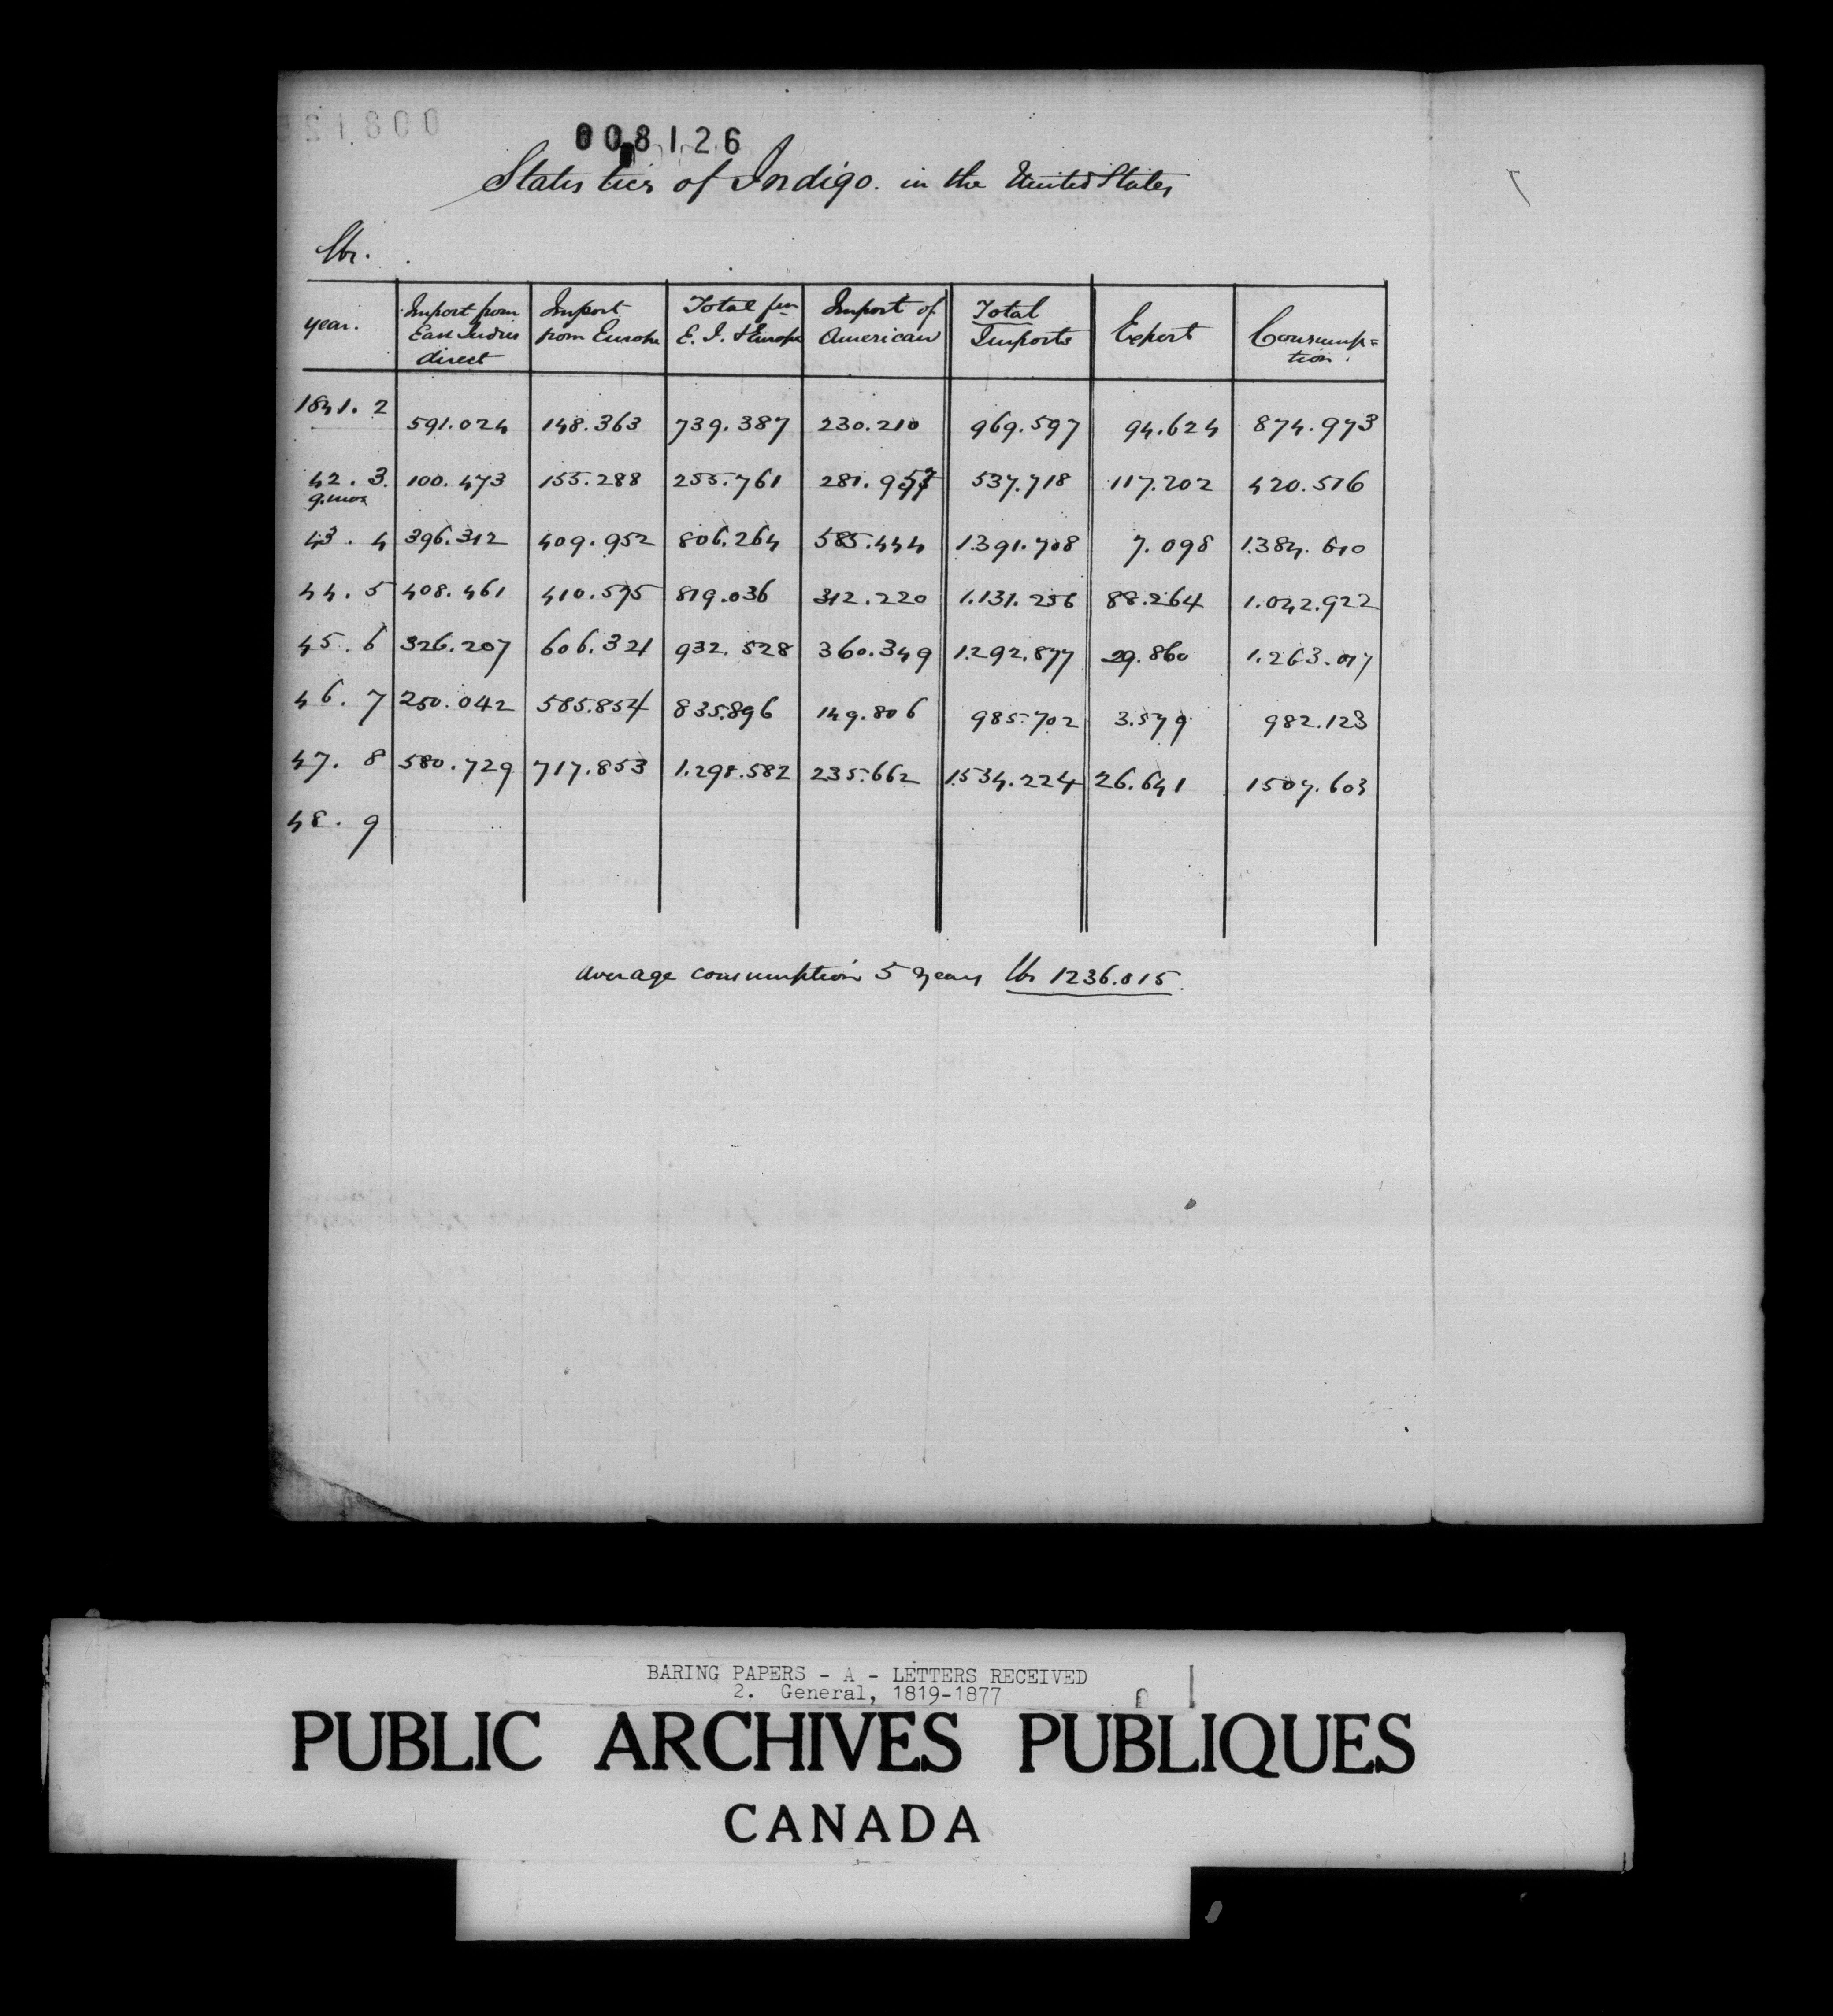 008126
Statistics of Indigo. in the United States
lbs.
year. | Import from East Indies direct | Import from Europe | Total fm E. I. & Europe | Import of American | Total Imports | Export | Consump=tion.
1841. 2 | 591.024 | 148.363 | 739.387 | 230.210 | 969.597 | 94.624 | 874.973
42. 3. 9. mos | 100.473 | 155.288 | 255.761 | 281.957 | 537.718 | 117.202 | 420.516
43. 4 | 396.312 | 409.952 | 806.264 | 585.444 | 1.391.708 | 7.098 | 1.384.610
44. 5 | 408.461 | 410.575 | 819.036 | 312.220 | 1.131.256 | 88.264 | 1.042.922
45. 6 | 326.207 | 606.321 | 932.528 | 360.349 | 1.292.877 | 29.860 | 1.263.017
46. 7 | 250.042 | 585.854 | 835.896 | 149.806 | 985.702 | 3.579 | 982.123
47. 8 | 580.729 | 717.853 | 1.298.582 | 235.662 | 1.534.224 | 26.641 | 1507.603
48. 9
average consumption 5 years lbs 1236.015.
BARING PAPERS - A - LETTERS RECEIVED
2. General, 1819-1877
PUBLIC ARCHIVES PUBLIQUES
CANADA